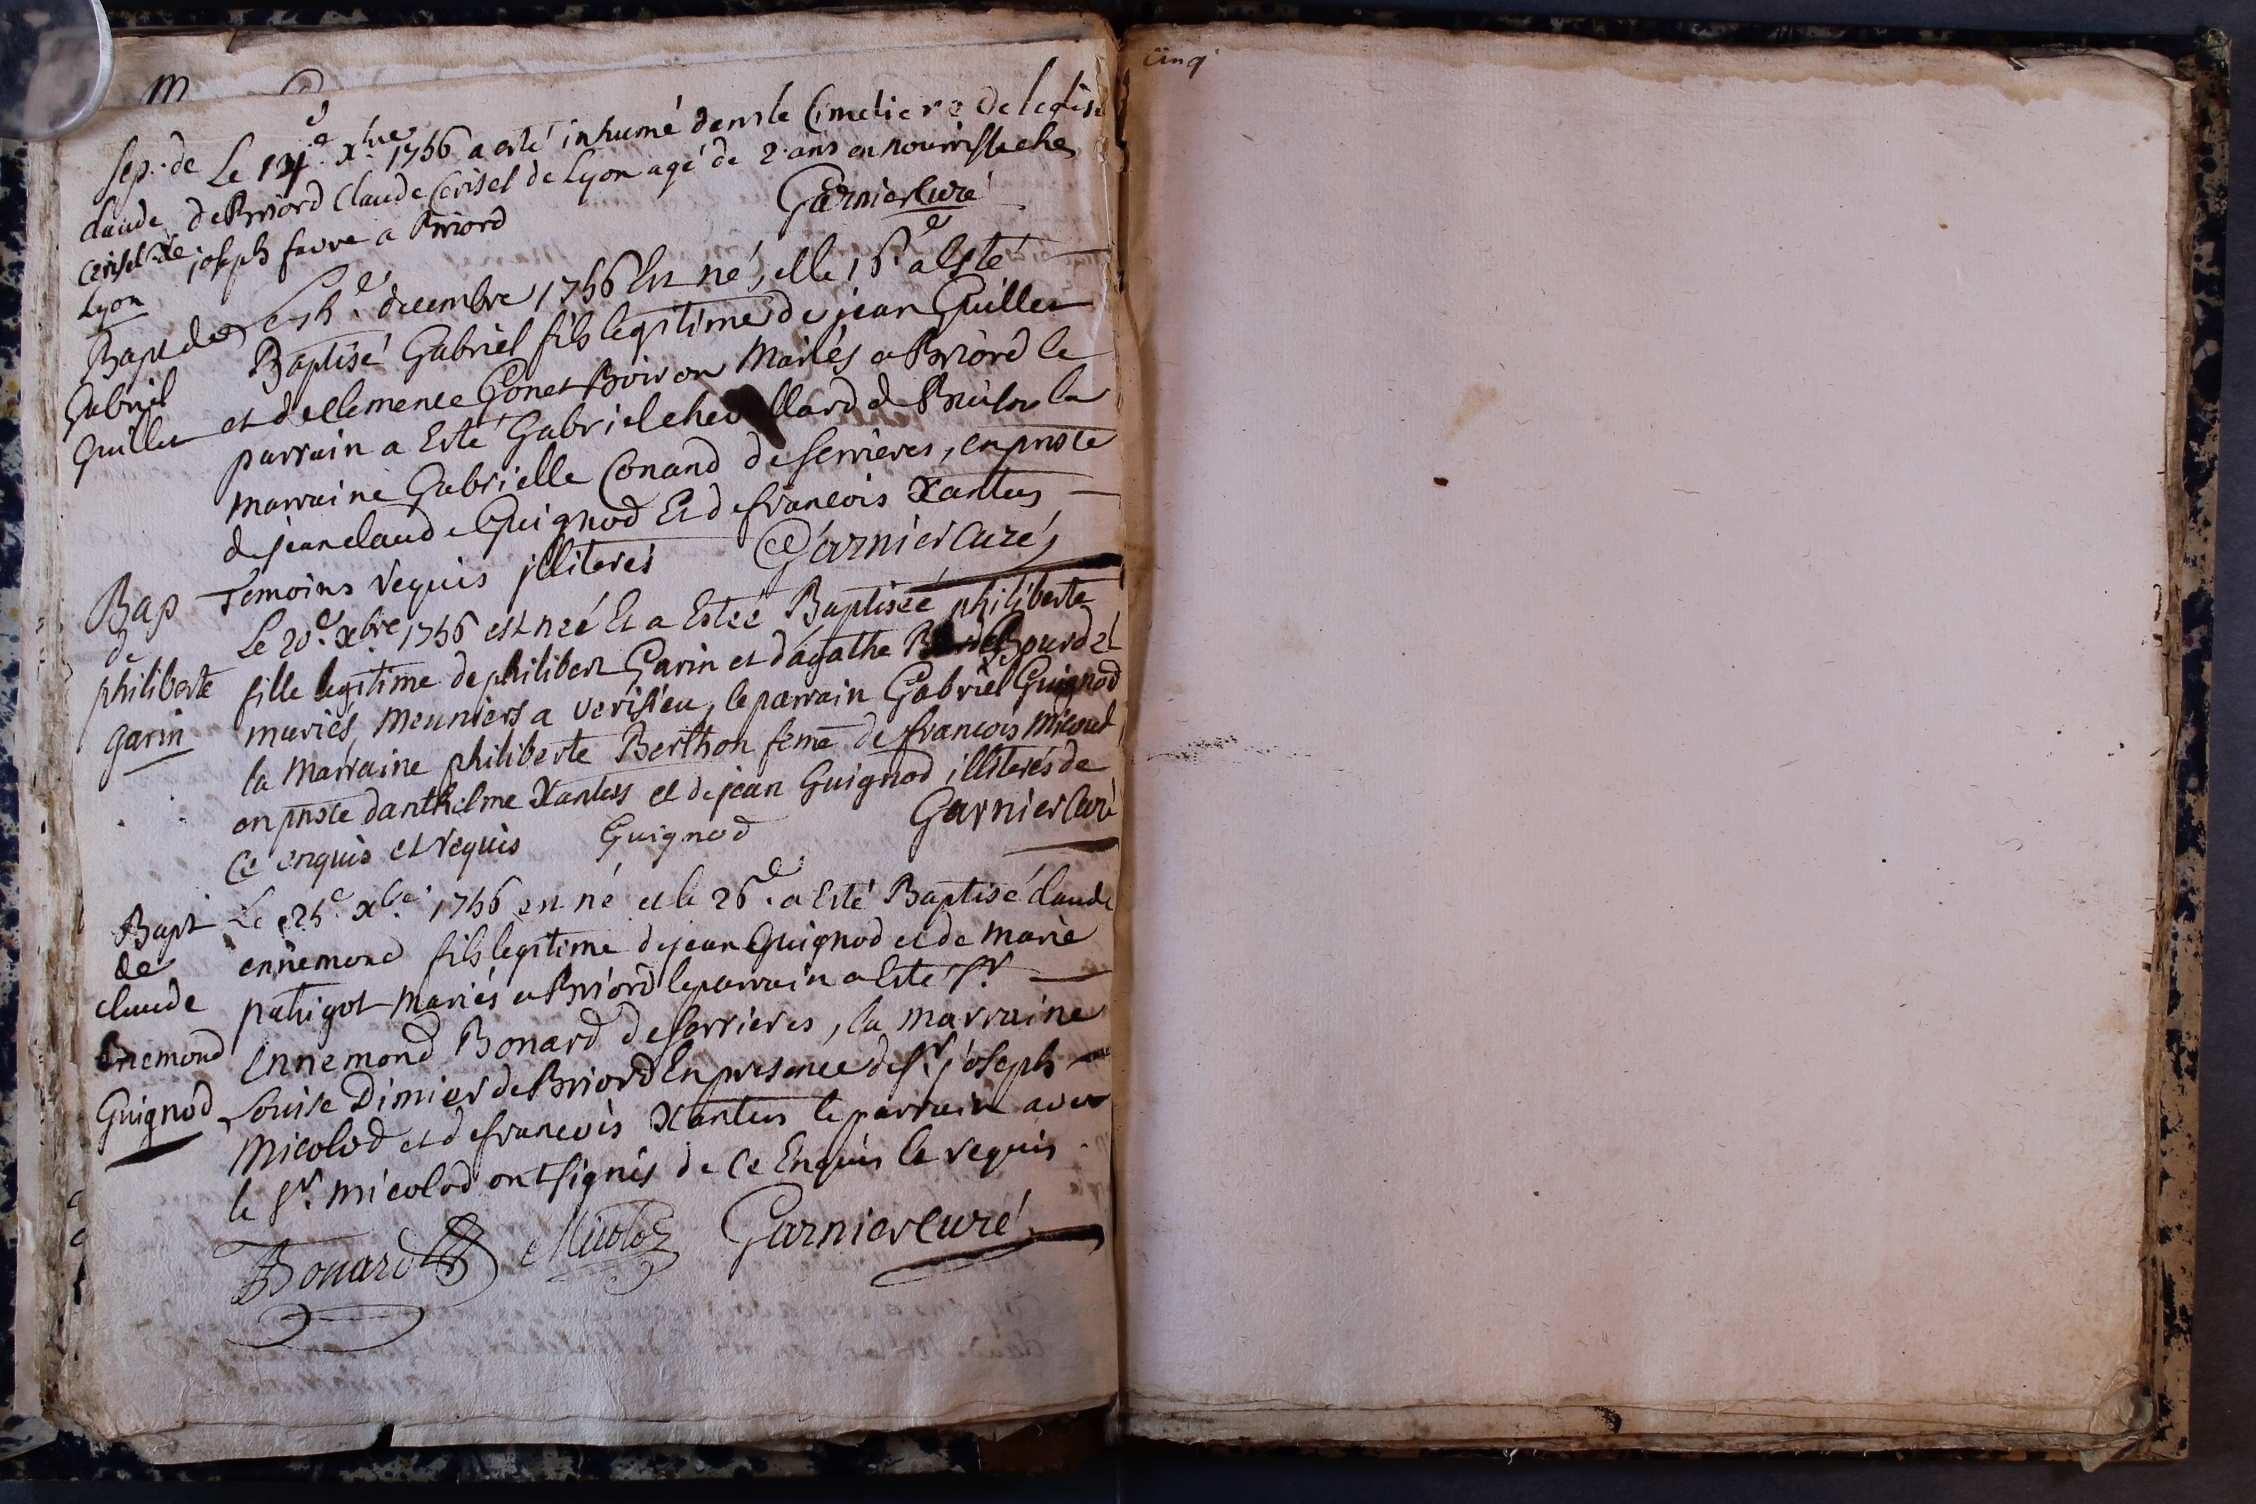 Sep. de
Claude
Cerisel de
Lyon
Le 14e. xbre 1756 a esté inhumé dans le Cimetiere de leglise
de Briord Claude Cerisel de Lyon agé de 2 ans en nourrisse ches
joseph favre a Briord
Garnier Curé
Bapt de
Gabriel
Guillet
Le 15e. decembre 1756 Est né, et le 16e. a Esté
Baptisé Gabriel fils legitime de jean Guillet
et de Clemence Gonet Boiron Mariés a Briord le
parrain a Esté Gabriel chevillard de la
marraine Gabrielle Conand de serrieres, en pnsce
de jean claude Guignod Et de francois Xanter
Temoins requis jlliterés
Garnier Curé
Bap
de
philiberte
garin
Le 20e. xbre 1756 est neé Et a Esteé Baptiseé philiberte
fille legitime de philibert Garin et dagathe Bourdel
mariés, Meuniers a verisieu, le parrain Gabriel Guignod
la Marraine philiberte Berthon feme de francois Micoud
en pnsce danthelme Xanters et de jean Guignod illiterés de
Ce enquis et requis
Guignod
Garnier Curé
Bapt
de
claude
Enemond
Guignod
Le 25e. xbre 1756 est né et le 26e. a Esté Baptisé claude
ennemond fils legitime de jean Guignod et de marie
pathigot Mariés a Briord le parrain a Esté Sr.
Ennemond Bonard de serrieres, la marraine
Louise Dimier de Briord En presence de Sr. joseph
Micolod et de francois Xanter le parrain avec
le Sr. micolod ont signés de Ce Enquis le requis.
Bonard
Micoloz
Garnier Curé
Cinq